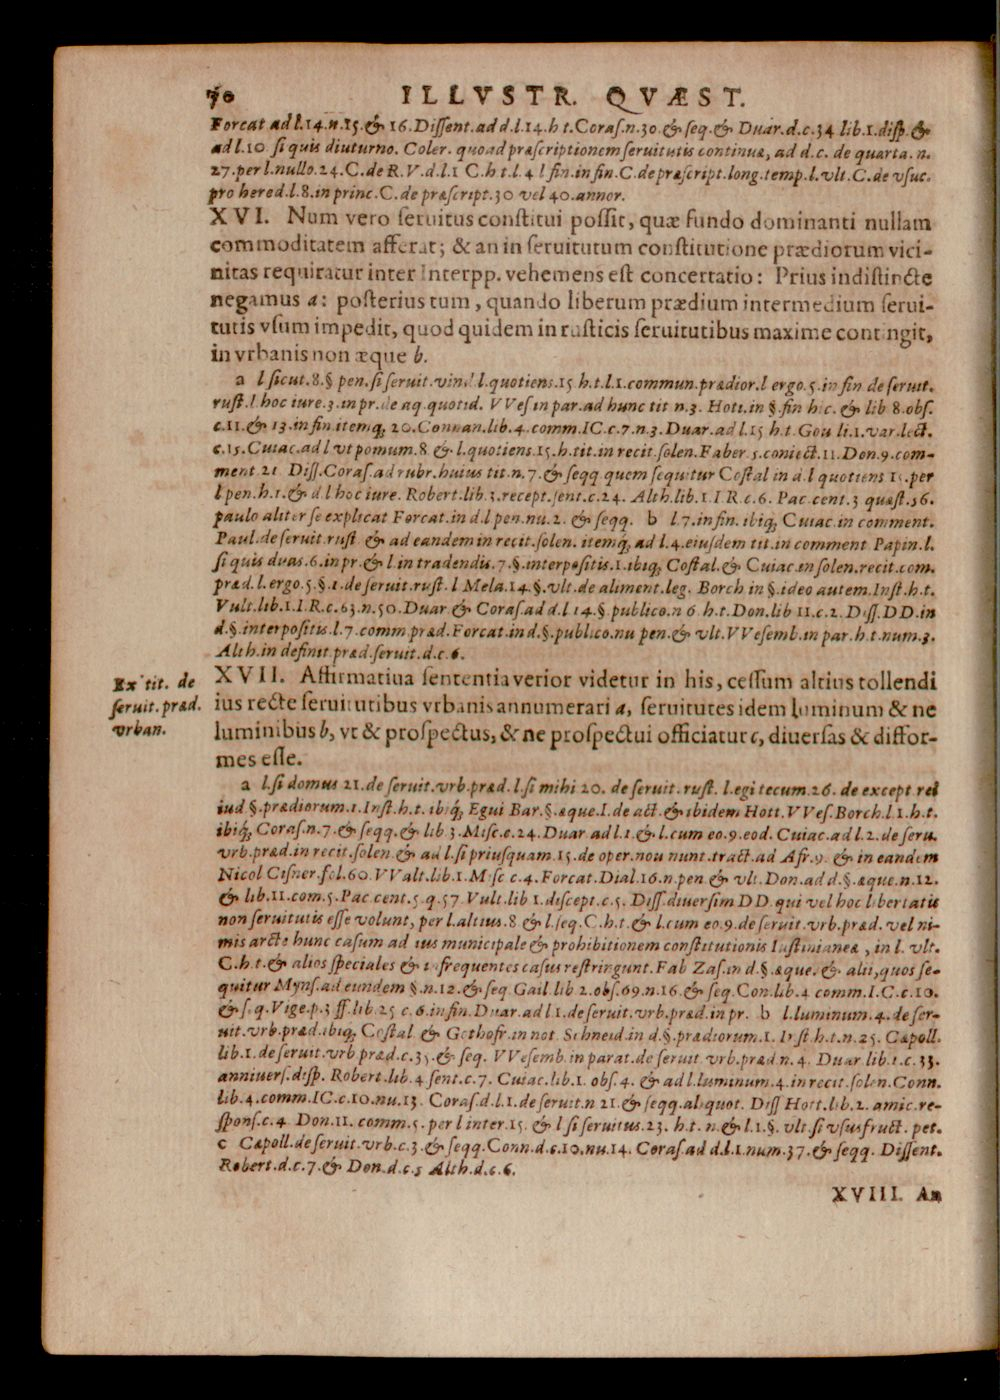 70 ILLVSTR. QVÆST.
Forcat ad l.14.n.15.& 16.Dissent.ad d.l.14.h t.Coras.n.30.& seq.& Duar.d.c.34 lib.1.disp.&
ad l.10 si quis diuturno. Coler. quoad præscriptionem seruitutis continuæ, ad d.c. de quarta. n.
27.per l.nullo.24.C.de R.V.d.l.1 C.h t.l.4 l fin.in fin.C.de præscript.long.temp.l.vlt.C.de vsuc.
pro hered.l.8.in princ.C.de præscript.30 vel 40.annor.
XVI. Num vero seruitus constitui possit, quæ fundo dominanti nullam
commoditatem afferat; & an in seruitutum constitutione prædiorum vici-
nitas requiratur inter Interpp. vehemens est concertatio: Prius indistincte
negamus a: posterius tum, quando liberum prædium intermedium serui-
tutis vsum impedit, quod quidem in rusticis seruitutibus maxime contingit,
in vrbanis non æque b.
a l sicut.8.§ pen.si seruit.vind l.quotiens.15 h.t.l.1.commun.prædior.l ergo.5.in fin de seruit.
rust.l hoc iure.3.in pr.de aq.quotid. VVes in par.ad hunc tit n.3. Hott.in §.fin h c. & lib 8.obs.
c.11.& 13.in fin.itemq́, 20.Connan.lib.4.comm.IC.c.7.n.3.Duar.ad l.15 h.t.Gou li.1.var.lect.
c.15.Cuiac.ad l vt pomum.8 & l.quotiens.15.h.tit.in recit.solen.Faber 5.coniect.11.Don.9.com-
ment 21 Diss.Coras.ad rubr.huius tit.n.7.& seqq quem sequitur Costal in d.l quotiens 15.per
l pen.h.t.& d l hoc iure. Robert.lib.3.recept.sent.c.24. Alth.lib.1.I R.c.6. Pac cent.3 quæst.56.
paulo aliter se explicat Forcat.in d.l pen.nu.2. & seqq. b l.7.in fin. ibiq́, Cuiac.in comment.
Paul.de seruit.rust & ad eandem in recit.solen. itemq́, ad l.4.eiusdem tit.in comment Papin.l.
si quis duas.6.in pr.& l.in tradendis.7.§.interpositis.1.ibiq́, Costal.& Cuiac.in solen.recit.com.
præd.l.ergo.5.§.1.de seruit.rust.l Mela.14.§.vlt.de aliment.leg. Borch in §.ideo autem.Inst.h.t.
Vult.lib.1.I.R.c.63.n.50.Duar & Coras.ad d.l 14.§ publico.n 6 h.t.Don.lib 11.c.2. Diss.DD.in
d.§.interpositis.l.7.comm præd.Forcat.in d.§.publico.nu pen.& vlt.VVesemb.in par.h.t.num.3.
Alth.in definit.præd.seruit.d.c.6.
Ex tit. de
seruit.præd.
vrban.
XVII. Affirmatiua sententia verior videtur in his, cessum altius tollendi
ius recte seruitutibus vrbanis annumerari a, seruitutes idem luminum & ne
luminibus b, vt & prospectus, & ne prospectui officiatur c, diuersas & diffor-
mes esse.
a l.si domus 21.de seruit.vrb.præd.l.si mihi 20. de seruit.rust. l.egi tecum.26. de except rei
iud §.prædiorum.1.Inst.h.t. ibiq́, Egui Bar.§.æque.I.de act.& ibidem Hott.VVes.Borch.l 1.h.t.
ibiq́, Coras.n.7.& seqq.& lib.3.Misc.c.24.Duar ad l.1.& l.cum eo.9.eod. Cuiac.ad l.2.de seru.
vrb.præd.in recit.solen & ad l.si priusquam.15.de oper.nou nunt.tract.ad Afr.9. & in eandem
Nicol Cisner.fol.60.VValt.lib.1.Misc c.4.Forcat.Dial.16.n.pen & vlt.Don.ad d.§.æque.n.12.
& lib.11.com.5.Pac cent.5.q.57 Vult.lib 1.discept.c.5. Diss.diuersim DD.qui vel hoc libertatis
non seruitutis esse volunt, per l.altius.8 & l.seq.C.h.t.& l.cum eo.9.de seruit.vrb.præd. vel ni-
mis arcte hunc casum ad ius municipale & prohibitionem constitutionis Iustinianeæ, in l. vlt.
C.h.t.& alios speciales & infrequentes casus restringunt.Fab Zas.in d.§.æque.& alii, quos se-
quitur Myns.ad eundem §.n.12.& seq Gail lib 2.obs.69.n.16.& seq.Con.lib.4 comm.I.C.c.10.
& seq.Vige.p.3 ff.lib.25 c.6.in fin.Duar.ad l 1.de seruit.vrb.præd.in pr. b l.luminum.4.de ser-
uit.vrb.præd.ibiq́, Costal & Gothofr.in not Schneid.in d.§.prædiorum.1. Inst.h.t.n.25. Cæpoll.
lib.1.de seruit.vrb præd.c.35.& seq. VVesemb in parat.de seruit vrb.præd n.4. Duar lib.1.c.33.
anniuers.disp. Robert.lib.4 sent.c.7. Cuiac.lib.1. obs.4. & ad l.luminum.4.in recit.solen.Conn.
lib.4.comm.IC.c.10.nu.13. Coras.d.l.1.de seruit.n 21.& seqq.aliquot. Diss Hott.lib.2. amic.re-
spons.c.4. Don.11. comm.5. per l inter.15. & l si seruitus.23. h.t. n.& l.1.§. vlt.si vsusfruct. pet.
c Cæpoll.de seruit.vrb.c.3.& seqq.Conn.d.c.10.nu.14. Coras.ad d.l.1.num.37.& seqq. Dissent.
Robert.d.c.7.& Don.d.c.5 Alth.d.c.6.
XVIII. An